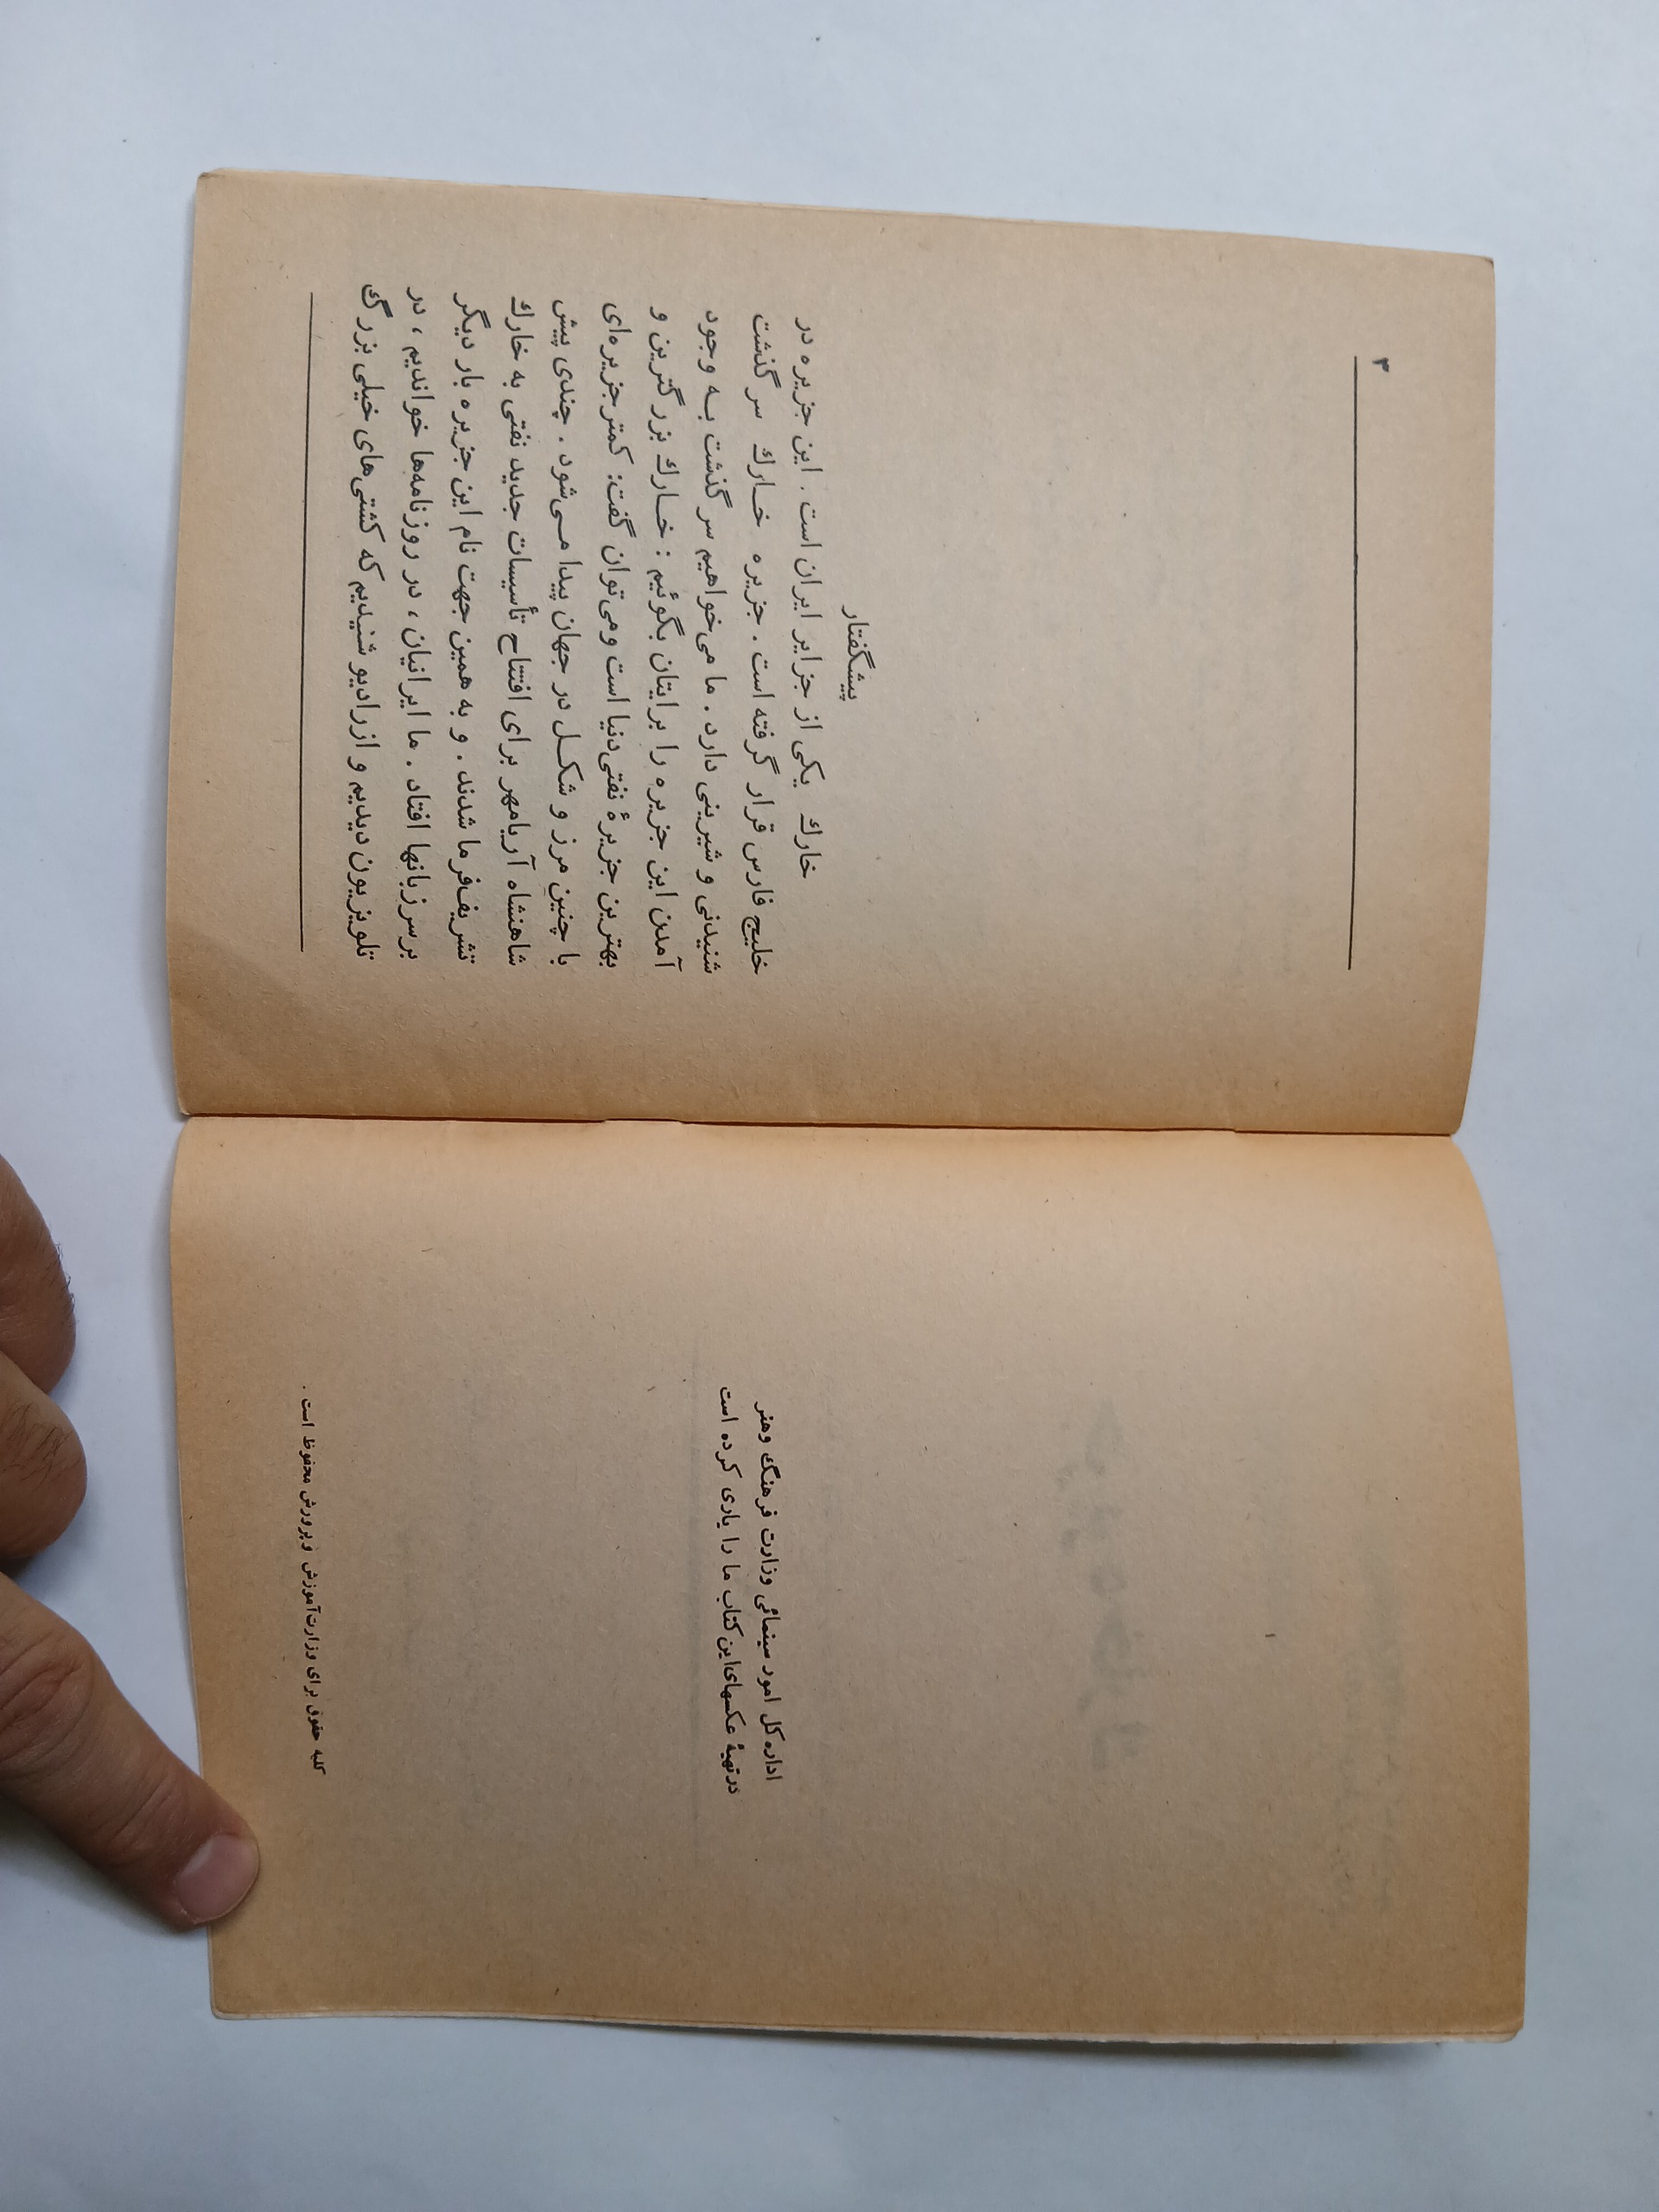 اداره کل امور سینمائی وزارت فرهنگ وهنر
در تهیهٔ عکسهای این کتاب ما را یاری کرده است
کلیه حقوق برای وزارت آموزش وپرورش محفوظ است .
۳
پیشگفتار
خارك یکی از جزایر ایران است . این جزیره در
خلیج فارس قرار گرفته است . جزیره خـارك سرگذشت
شنیدنی و شیرینی دارد . ما می‌خواهیم سرگذشت بـه وجود
آمدن این جزیره را برایتان بگوئیم : خـارك بزرگترین و
بهترین جزیرهٔ نفتی‌دنیا است ومی‌توان گفت : کمتر جزیره‌ای
با چنین مرز و شکـل در جهان پیدا مـی‌شود . چندی پیش
شاهنشاه آریامهر برای افتتاح تأسیسات جدید نفتی به خارك
تشریف‌فرما شدند . و به همین جهت نام این جزیره بار دیگر
بر سر زبانها افتاد . ما ایرانیان ، در روزنامه‌ها خواندیم ، در
تلویزیون دیدیم و از رادیو شنیدیم که کشتی‌های خیلی بزرگ